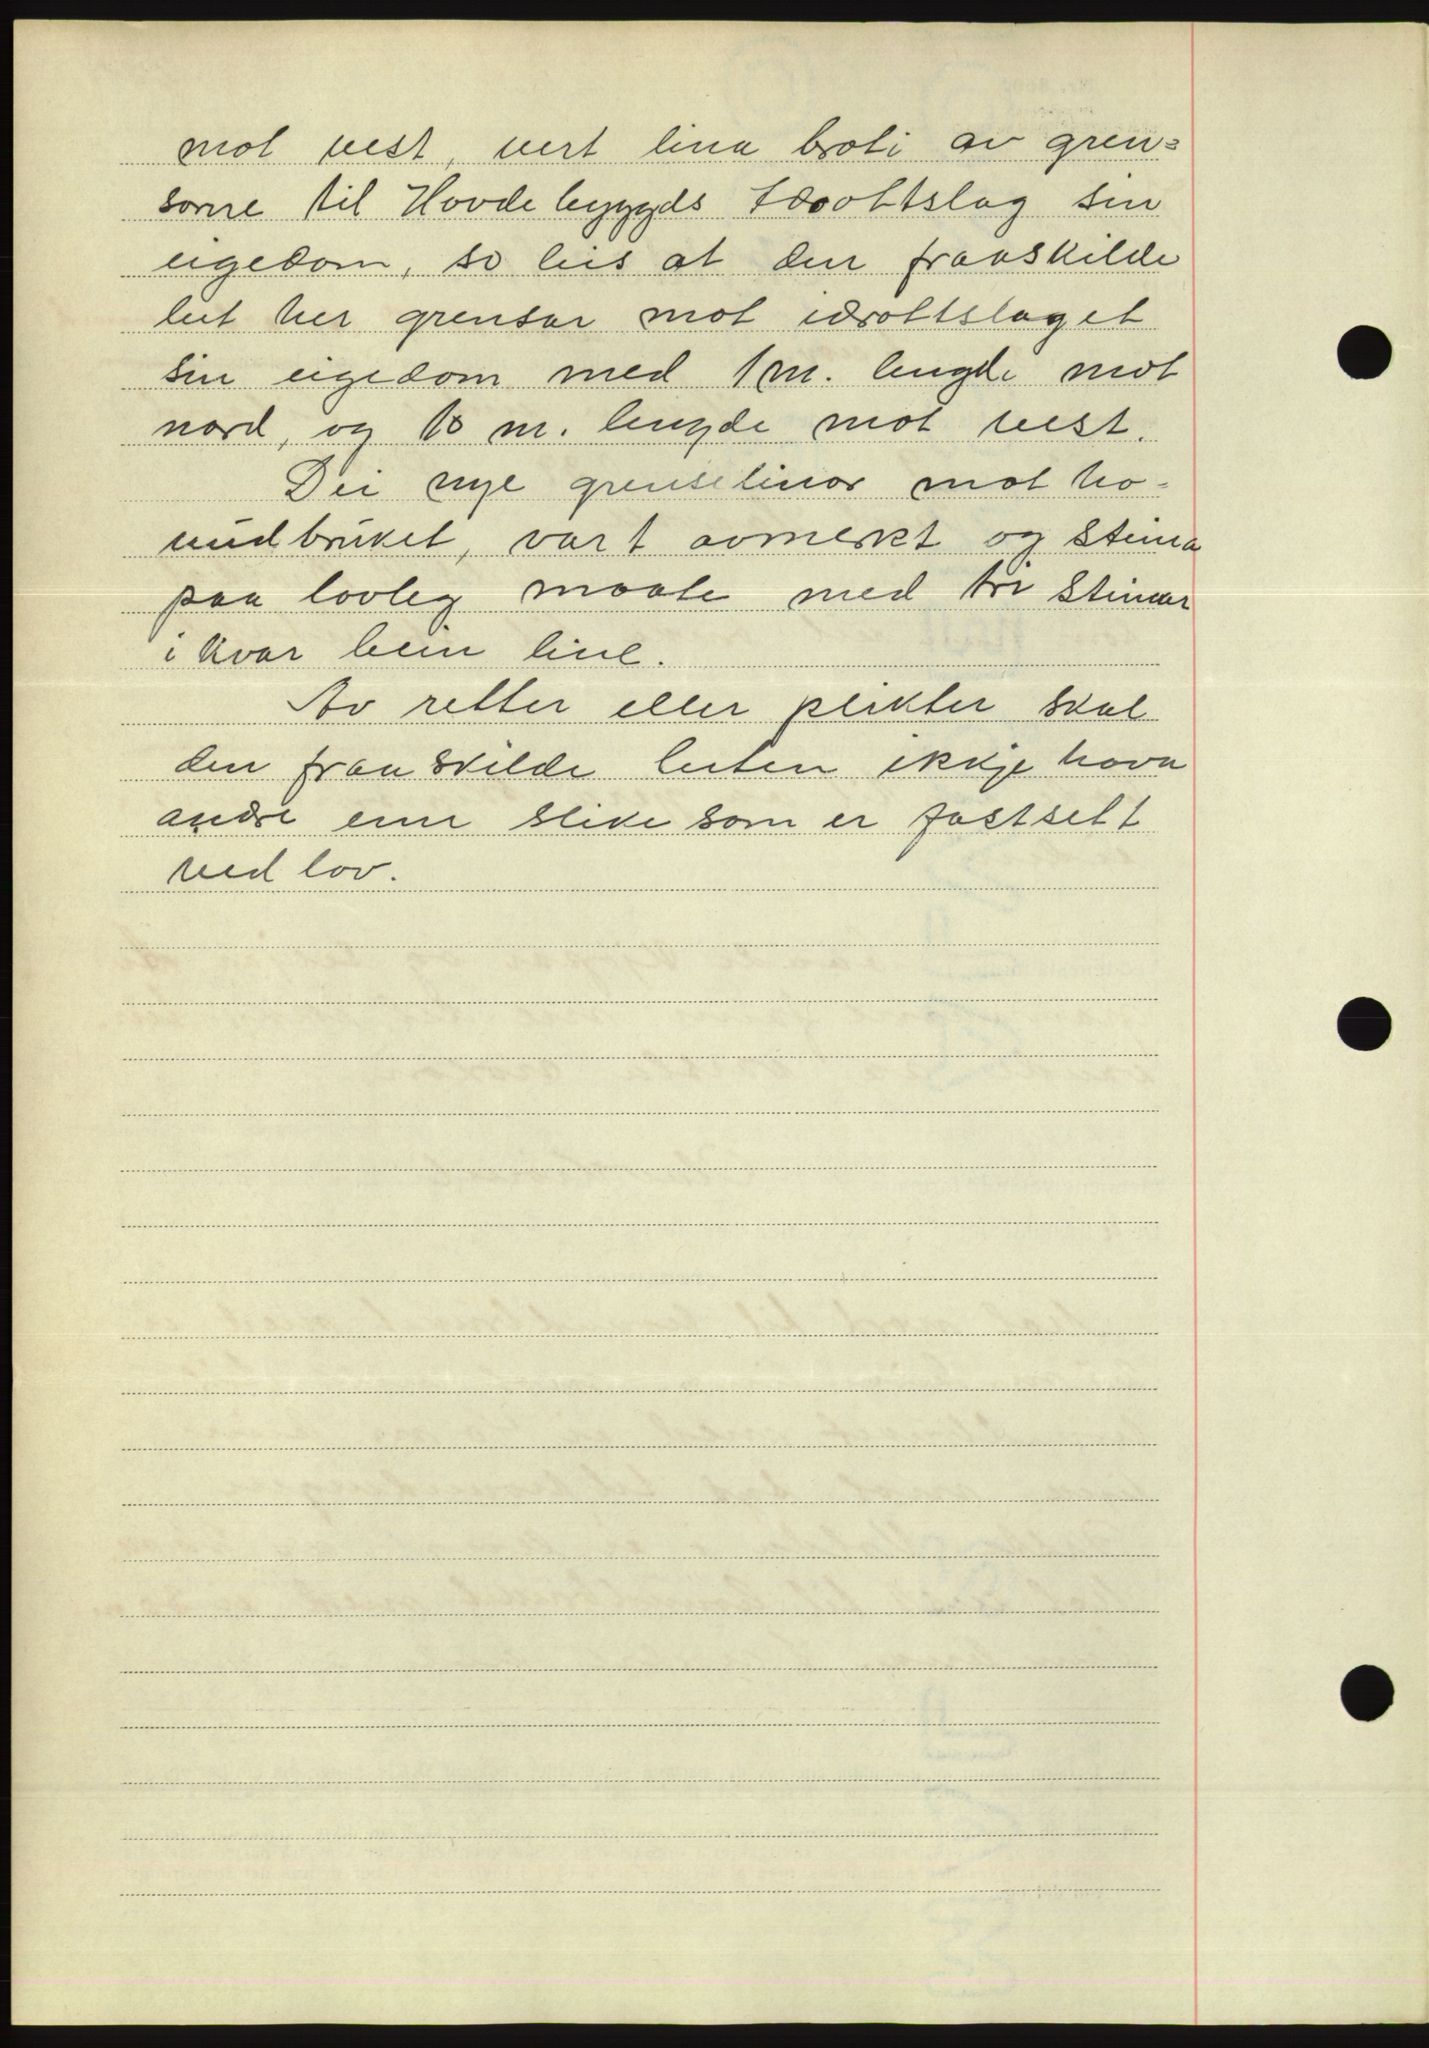 mot vest, vert lina broti av gren=
sorne til Hovdebyggds Idrottslag sin
eigedom, so leis at den fraaskilde
lut her grensar mot idrottslaget
sin eigedom med 1 m. lengde mot
nord, og 10 m. lengde mot vest.
Dei nye grenselinor mot ho-
vudbruket, vart avmerkt og steina
paa lovleg maate med tri steinar
i kvar bein line.
Av retter eller plikter skal
den fraaskilde luten ikkje hava
andre enn slike som er fastsett
ved lov.